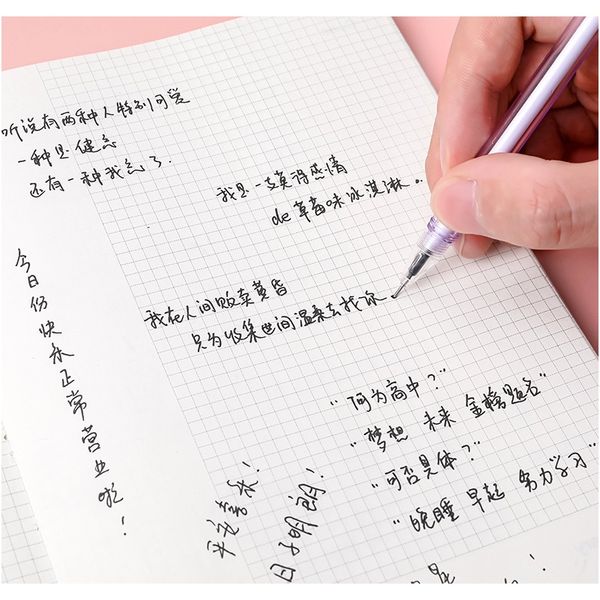 听说有两种人特别可爱
一种是健忘
还有一种我忘了.
我是一支莫得感情
de草莓味冰淇淋。
我在人间贩卖黄昏
只为收集世间温柔去找你.
今日份快乐正常营业啦！
"何为高中？"
"梦想 未来 金榜题名"
"可否具体？"
"晚睡 早起 努力学习"
平安喜乐！
日子明朗！